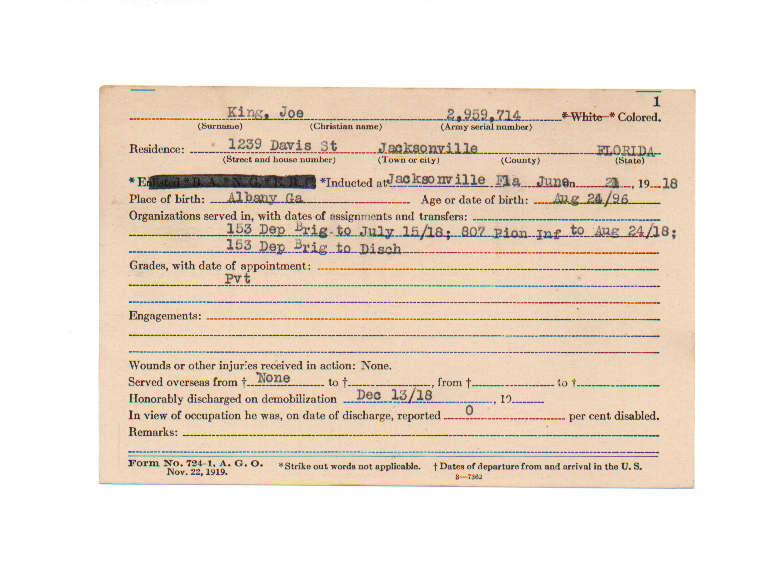 1
King, Joe 2,959,714 *White *Colored.
(Surname) (Christian name) (Army serial number)
Residence: 1239 Davis St Jacksonville FLORIDA
(Street and house number) (Town or city) (County) (State)
*Enlisted *R. A. *N. G. *E. R. C. *Inducted at Jacksonville Fla June on 21, 1918
Place of birth: Albany Ga Age or date of birth: Aug 24/96
Organizations served in, with dates of assignments and transfers:
153 Dep Brig to July 15/18; 807 Pion Inf to Aug 24/18;
153 Dep Brig to Disch
Grades, with date of appointment:
Pvt
Engagements:
Wounds or other injuries received in action: None.
Served overseas from † None to †, from † to †
Honorably discharged on demobilization Dec 13/18, 19
In view of occupation he was, on date of discharge, reported 0 per cent disabled.
Remarks:
Form No. 724-1, A. G. O. *Strike out words not applicable. † Dates of departure from and arrival in the U. S.
Nov. 22, 1919. 3—7362